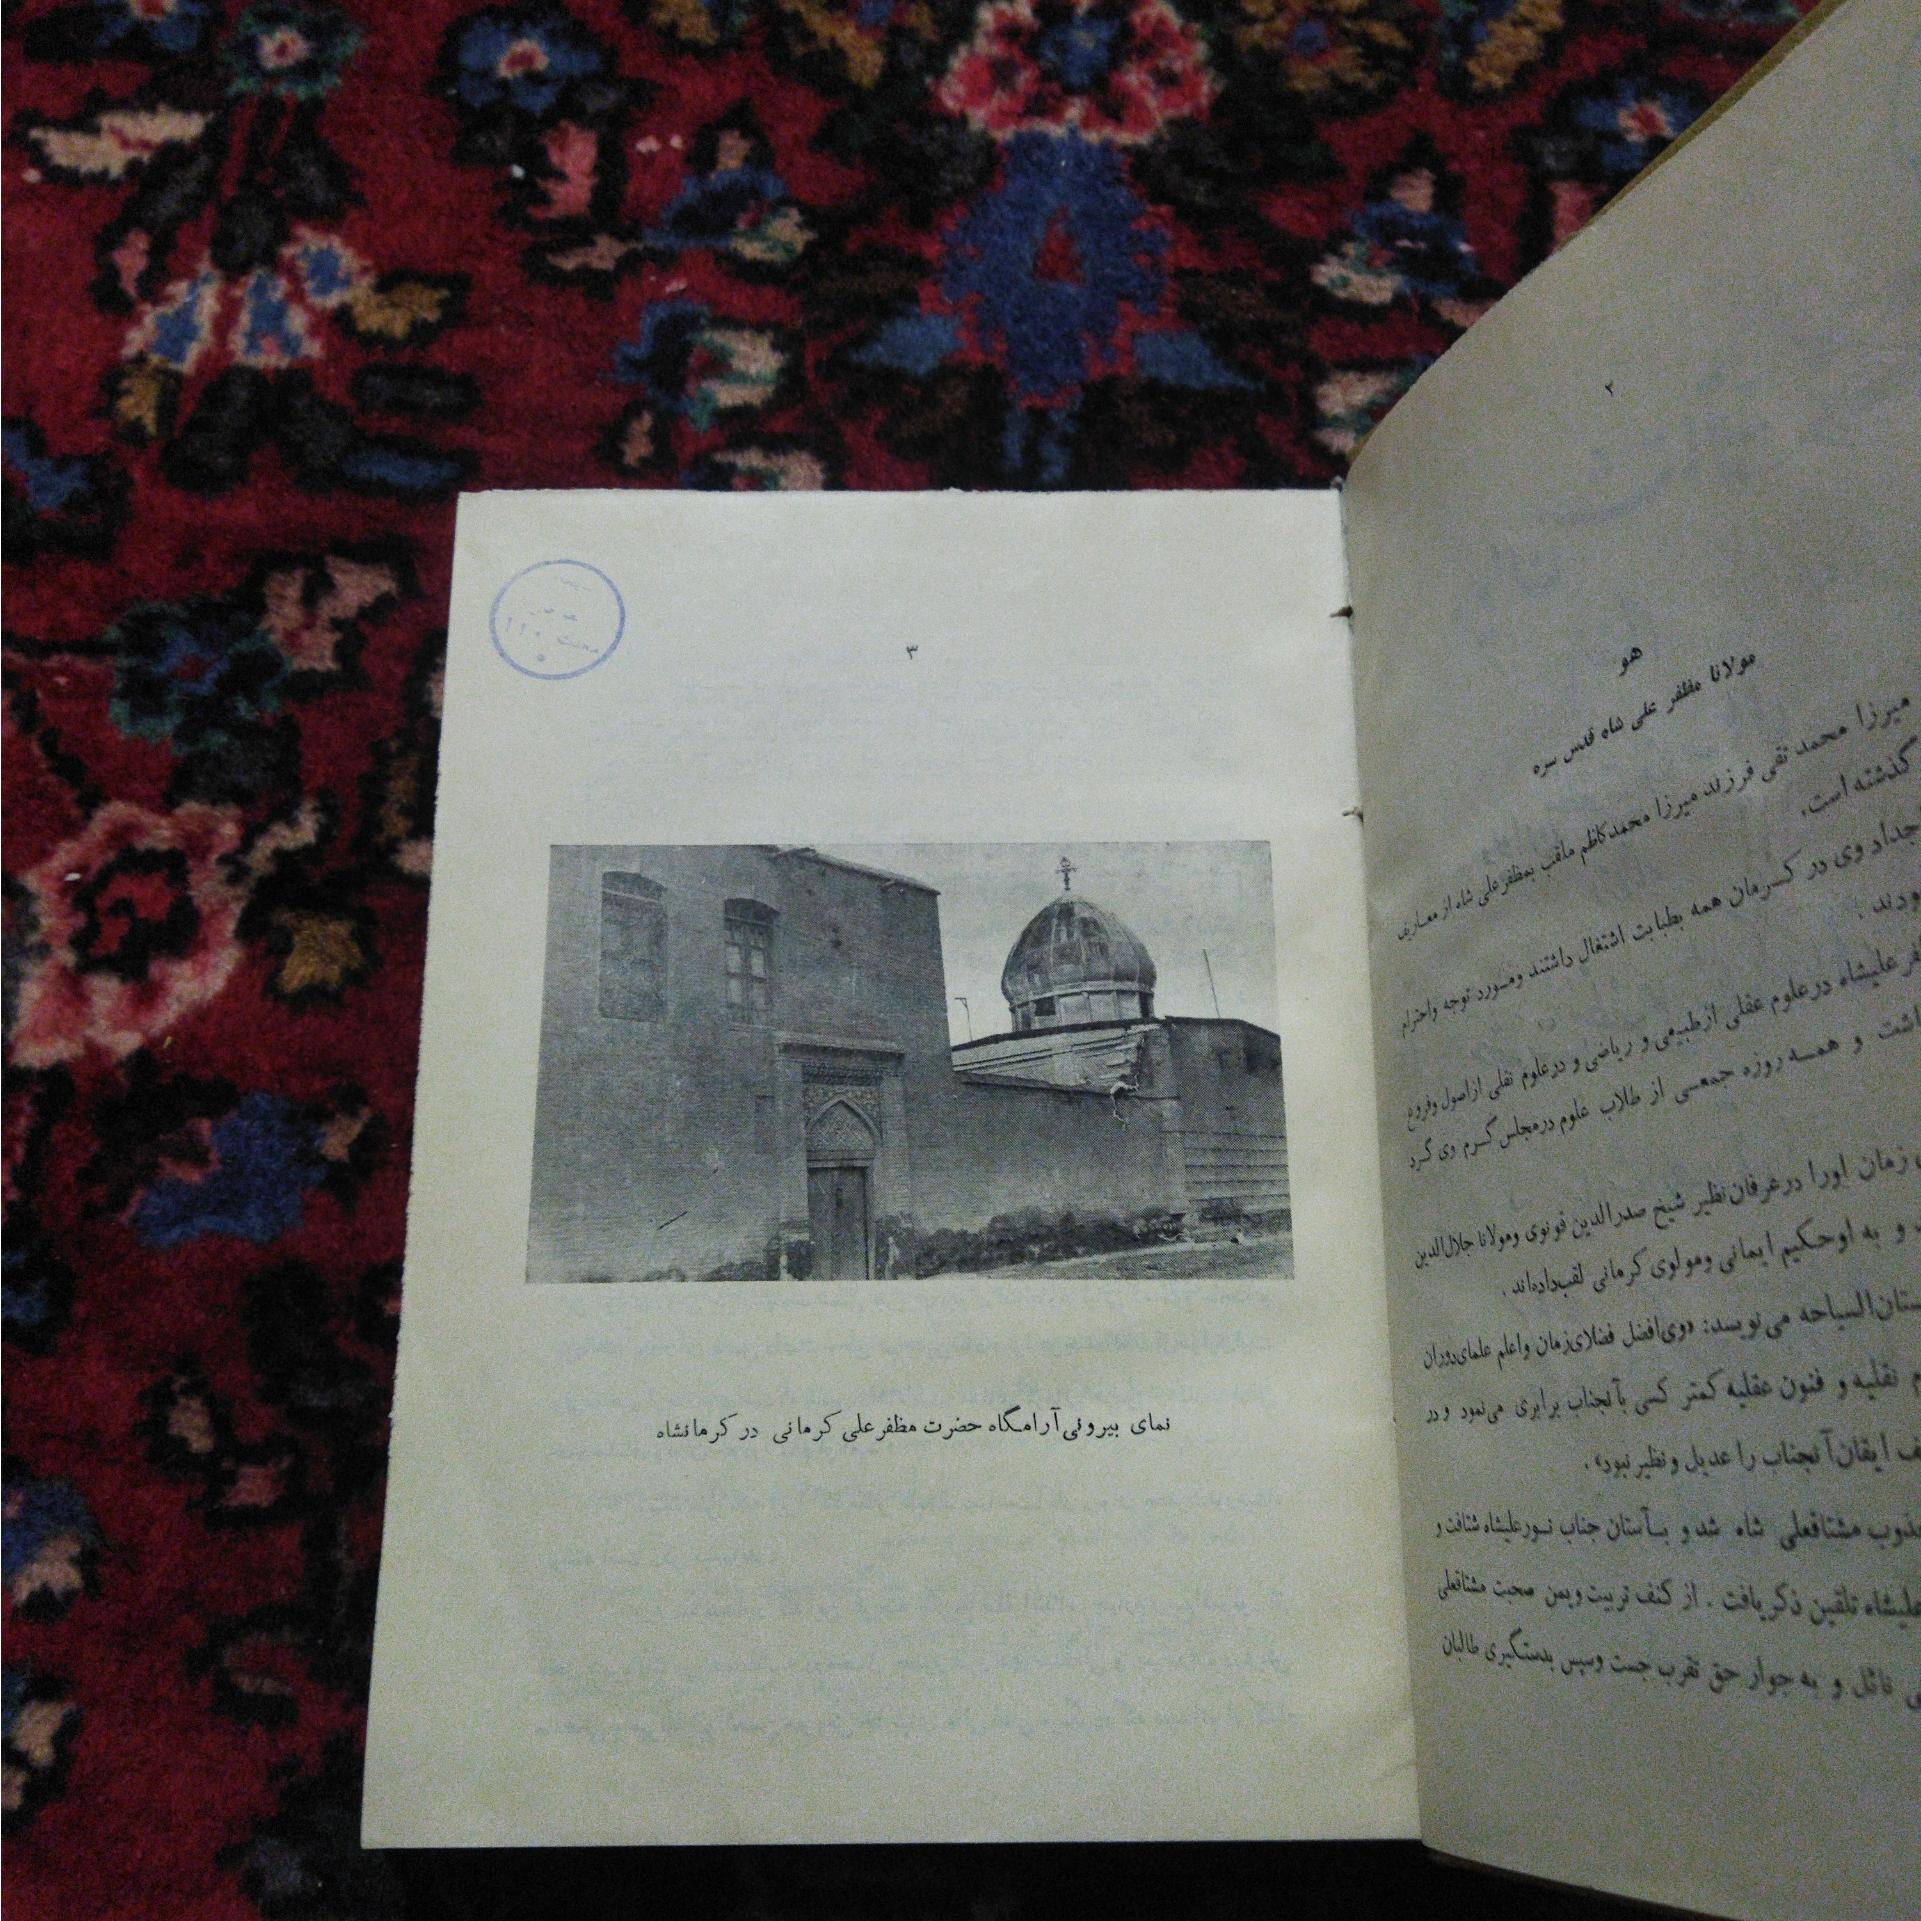 ۲
هو
مولانا مظفر علی شاه قدس سره
میرزا محمد تقی فرزند میرزا محمدکاظم ملقب بمظفرعلی شاه از معاریف
گذشته است.
جداد وی در کرمان همه بطبابت اشتغال داشتند ومورد توجه واحترام
ودند.
فر علیشاه درعلوم عقلی ازطبیعی و ریاضی و درعلوم نقلی ازاصول وفروع
اشت و همه روزه جمعی از طلاب علوم درمجلس گرم وی گرد
زمان اورا درعرفان نظیر شیخ صدرالدین قونوی ومولانا جلال‌الدین
و به اوحکیم ایمانی ومولوی کرمانی لقب‌داده‌اند.
ستان‌السیاحه می‌نویسد: «وی‌افضل فضلای‌زمان واعلم علمای‌دوران
م نقلیه و فنون عقلیه کمتر کسی بآنجناب برابری می‌نمود و در
ف ایقان آنجناب را عدیل و نظیر نبود».
ذوب مشتاقعلی شاه شد و بآستان جناب نورعلیشاه شتافت و
علیشاه تلقین ذکر یافت. از کنف تربیت ویمن صحبت مشتاقعلی
ی نائل و به جوار حق تقرب جست وسپس بدستگیری طالبان
۳
نمای بیرونی آرامگاه حضرت مظفرعلی کرمانی در کرمانشاه